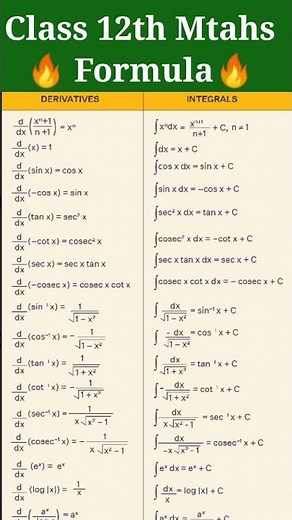 Class 12th Mtahs
🔥 Formula🔥
DERIVATIVES INTEGRALS
d/dx (xⁿ+1/n+1) = xⁿ ∫xⁿdx = xⁿ⁺¹/n+1 + C, n ≠ 1
d/dx (x) = 1 ∫dx = x + C
d/dx (sin x) = cos x ∫cos x dx = sin x + C
d/dx (−cos x) = sin x ∫sin x dx = −cos x + C
d/dx (tan x) = sec² x ∫sec² x dx = tan x + C
d/dx (−cot x) = cosec² x ∫cosec² x dx = −cot x + C
d/dx (sec x) = sec x tan x ∫sec x tan x dx = sec x + C
d/dx (−cosec x) = cosec x cot x ∫cosec x cot x dx = − cosec x + C
d/dx (sin⁻¹ x) = 1/√1 − x³ ∫ dx/√1 − x² = sin⁻¹ x + C
d/dx (cos⁻¹ x) = − 1/√1 − x² ∫ − dx/√1 − x² = cos⁻¹ x + C
d/dx (tan⁻¹ x) = 1/√1 + x² ∫ dx/√1 + x³ = tan⁻¹ x + C
d/dx (cot⁻¹ x) = − 1/√1 + x³ ∫− dx/√1 + x² = cot⁻¹ x + C
d/dx (sec⁻¹ x) = 1/x √x³ − 1 ∫ dx/x √x² − 1 = sec⁻¹ x + C
d/dx (cosec⁻¹ x) = − 1/x √x² − 1 ∫ dx/−x √x³ − 1 = cosec⁻¹ x + C
d/dx (eˣ) = eˣ ∫eˣ dx = eˣ + C
d/dx (log |x|) = 1/x ∫ dx/x = log |x| + C
d/ (aˣ/ ) = aˣ ∫aˣ dx = aˣ/ + C